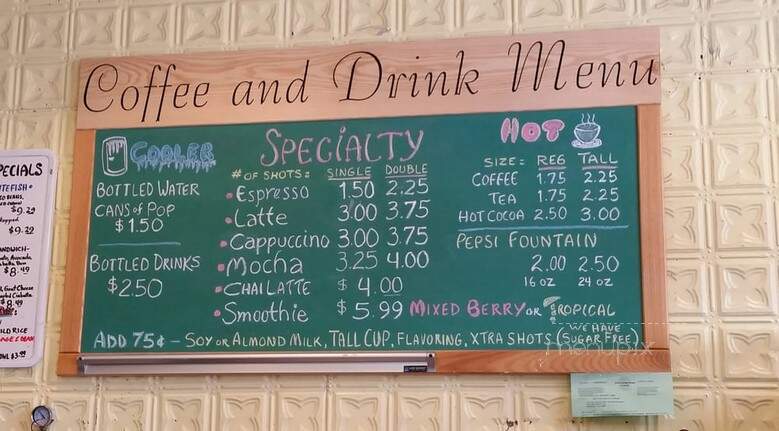 Coffee and Drink Menu
COOLER
BOTTLED WATER
CANS of POP
$1.50
BOTTLED DRINKS
$2.50
SPECIALTY
# OF SHOTS: SINGLE DOUBLE
Espresso 1.50 2.25
Latte 3.00 3.75
Cappuccino 3.00 3.75
Mocha 3.25 4.00
CHAI LATTE $ 4.00
Smoothie $ 5.99 MIXED BERRY OR TROPICAL
HOT
SIZE: REG TALL
COFFEE 1.75 2.25
TEA 1.75 2.25
HOT COCOA 2.50 3.00
PEPSI FOUNTAIN
2.00 2.50
16 OZ 24 OZ
WE HAVE
ADD 75¢ - SOY OR ALMOND MILK, TALL CUP, FLAVORING, XTRA SHOTS (SUGAR FREE)
menupix
PECIALS
TEFISH
$9.29
$9.29
NDWICH-
$8.49
Goat Cheese
$8.49
ILD RICE
$3.99